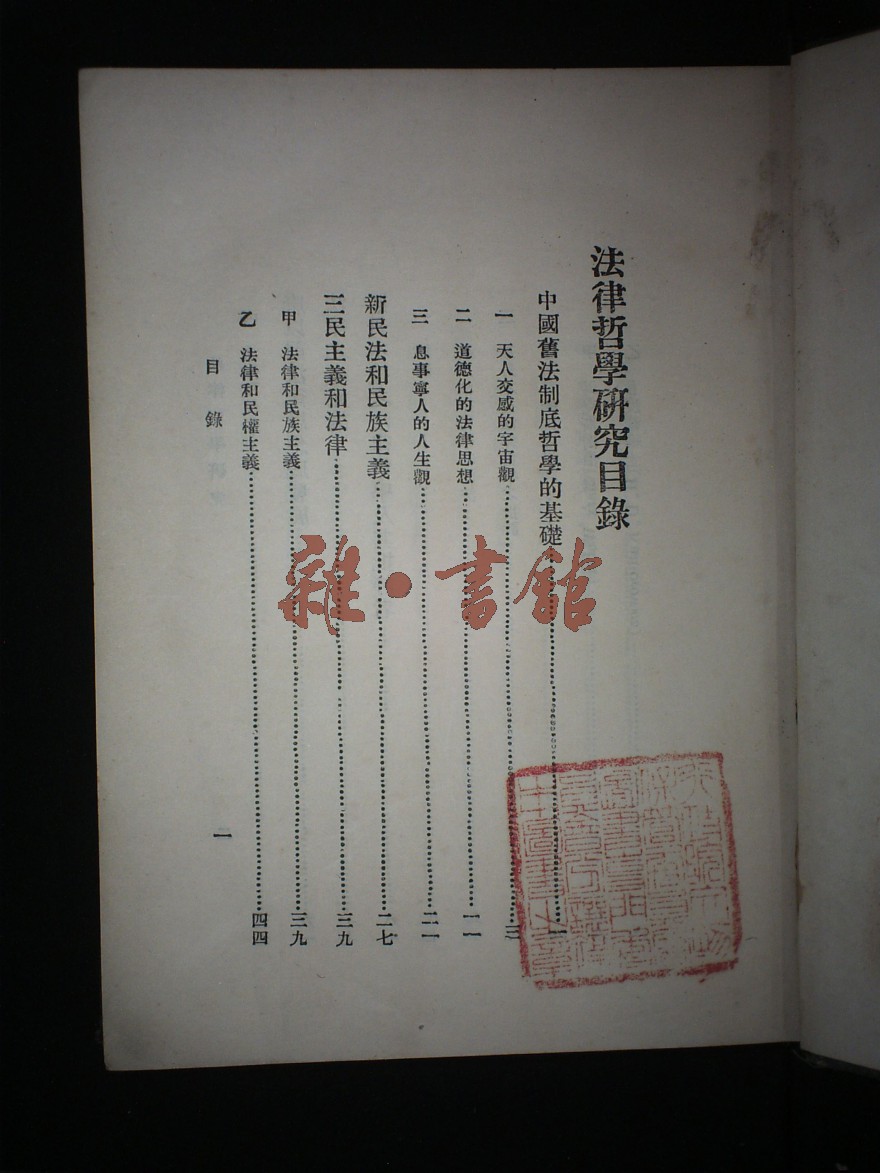 法律哲學研究目錄
中國舊法制底哲學的基礎………一
一　天人交感的宇宙觀………三
二　道德化的法律思想………一一
三　息事寧人的人生觀………二一
新民法和民族主義………二七
三民主義和法律………三九
甲　法律和民族主義………三九
乙　法律和民權主義………四四
目錄
一
雜·書館